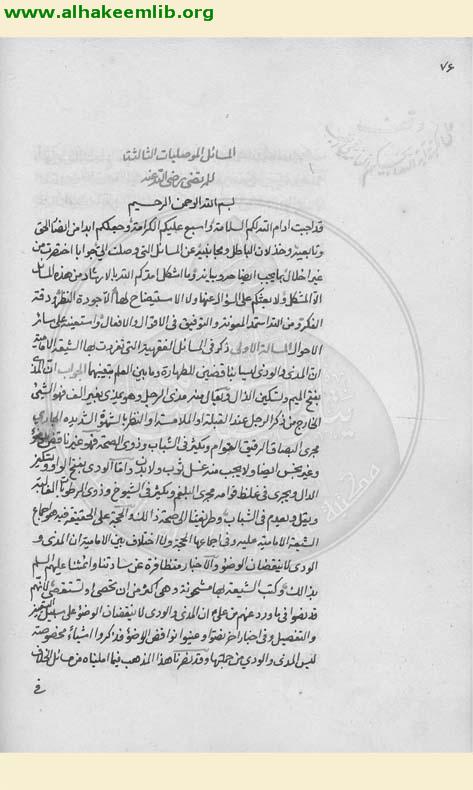 www.alhakeemlib.org
٧۶
المسائل الموصليات الثالثة
للمرتضى رضى الله عنه
بسم الله الرحمن الرحيم
قد اجبت ادام الله لكم السلامة واسبغ عليكم الكرامة وجعلكم ابدا من انصار الحق
وتابعيه وخذلان الباطل ومجانبيه عن المسائل التى وصلت الى جوابا اختصرت من
غير اخلال بما يجب ايضاحه وبيانه وما اشكل منكم القدر بالارشاد من هذه المسائل
الا المشكل ولا بعثكم على السؤال عنها ولا الاستيضاح لها الا جودة النظر ودقة
الفكرة ومن الله استمد المعونة والتوفيق فى الاقوال والافعال واستعينه على سائر
الاحوال المسالة الاولى ذكر فى المسائل الفقهية التى تفردت بها الشيعة الامامية
ان المذى والودى ليسا بناقضين للطهارة وما بين العلم بتعينهما الجواب ان المذى
بفتح الميم وتسكين الذال فيقال منه مذى الرجل وهو يمذى بغير الف فهو الشئ
الخارج من ذكر الرجل عند القبلة او الملامسة او النظر بالشهوة الشديده الجارى
مجرى البصاق الرقيق القوام ويكثر فى الشباب وذوى الصحة فهو غير ناقض الوضوء
وغير نجس ايضا ولا يجب منه غسل ثوب ولا بدن واما الودى بفتح الواو وتسكين
الدال ويجرى فى غلظ قوامه مجرى البلغم ويكثر فى الشيوخ وذوى الرطوبات الغالبة
ويقل ويعدم فى الشباب وطريقنا الى صحة ذلك والحجة على الحقيقة فيه هو اجماع
الشيعة الامامية عليه وفى اجماعها الحجة ولا اختلاف بين الامامية ان المذى و
الودى لا ينقضان الوضوء والاخبار متظافرة عن سادتنا وائمتنا عليهم السلم
بذلك وكتب الشيعة بها مشحونة وهى اكثر من ان تحصى وتستقصى لانهم
قد نصوا فى ما ورد عنهم من على ان المذى والودى لا ينقضان الوضوء على سبيل التمييز
والتفصيل وفى اخبار اخر نصوا وعينوا نواقض الوضوء فذكروا اشياء مخصوصة
ليس المذى والودى من جملتها وقد نصرنا هذا المذهب فيما امليناه من مسائل الخلاف
فى